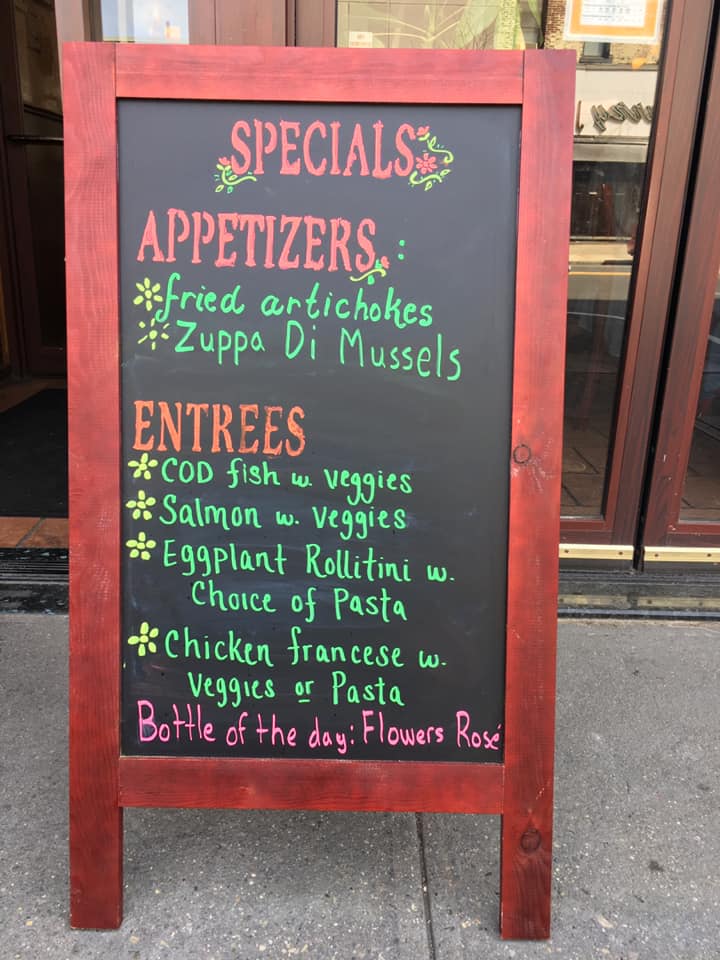 SPECIALS
APPETIZERS:
fried artichokes
Zuppa Di Mussels
ENTREES
COD fish w. veggies
Salmon w. veggies
Eggplant Rollitini w.
Choice of Pasta
Chicken francese w.
Veggies or Pasta
Bottle of the day: Flowers Rosé